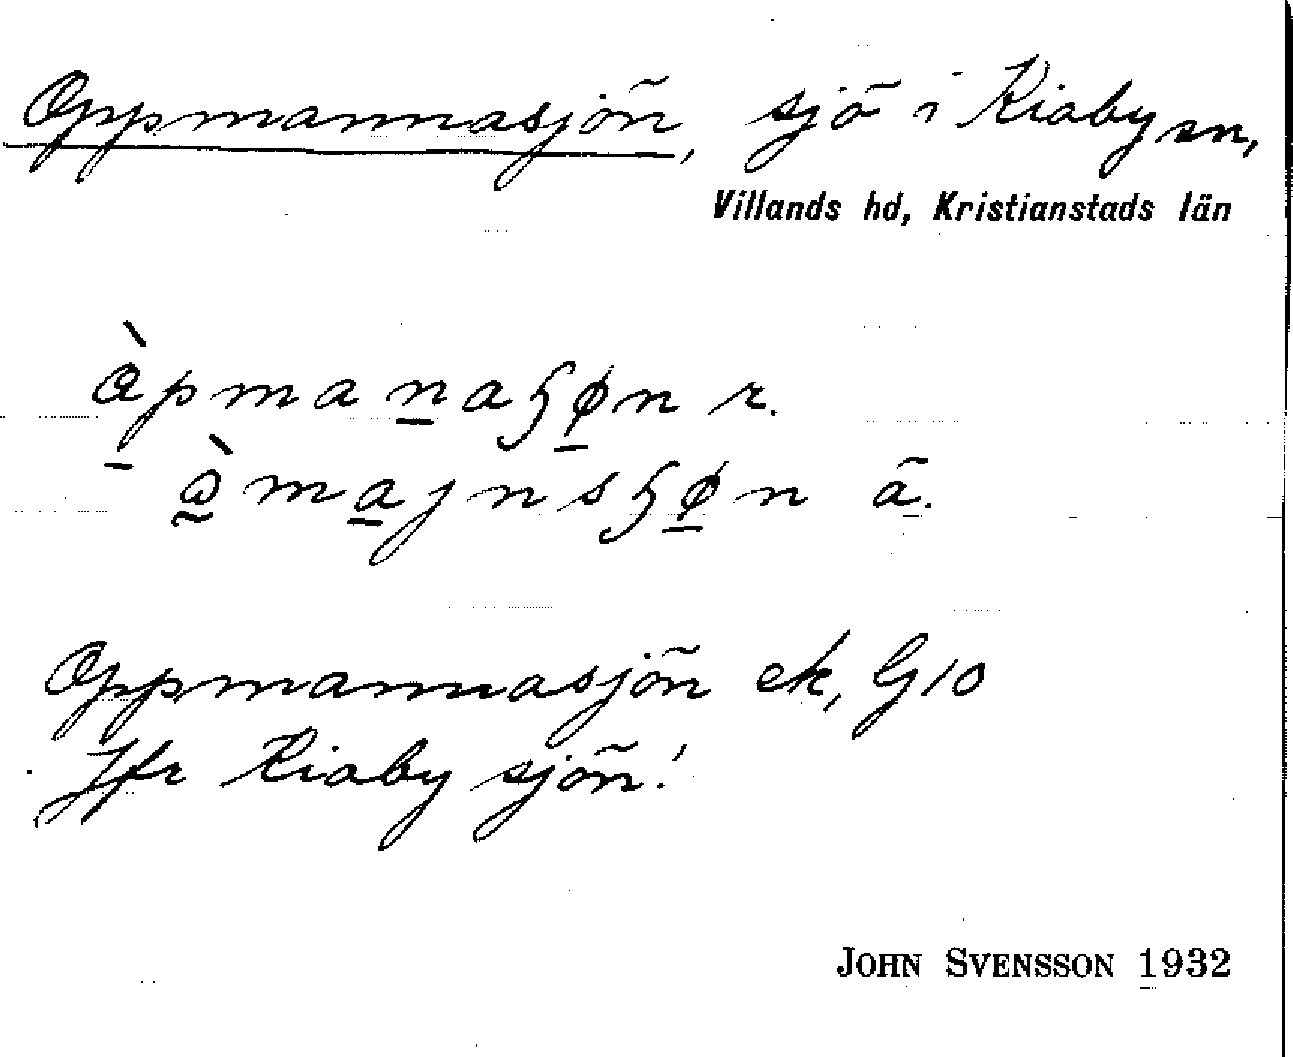 Oppmannasjön, sjö i Kiaby sn,
Villands hd, Kristianstads län
r.
ä.
Oppmannasjön ek, G10
Jfr Kiaby sjön!
JOHN SVENSSON 1932